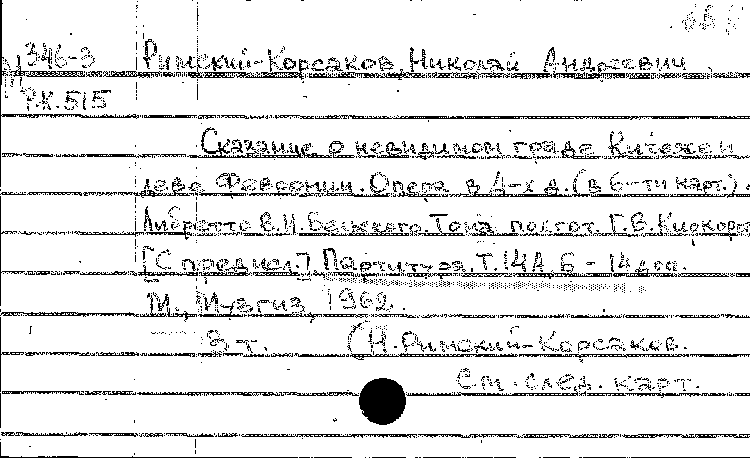 М 346-3 Римский-Корсаков, Николай Андреевич.
Р.К.515
Сказание о невидимом граде Китеже и
деве Февронии. Опера в 4-х д. (в 6-ти карт.).
Либретто В.И. Бельского. Тома подгот. Г.В. Киркор.
[С предисл.]. Партитура. Т. 14А, Б - 14 доп.
М., Музгиз, 1962.
3 т. (Н. Римский-Корсаков.
См. след. карт.